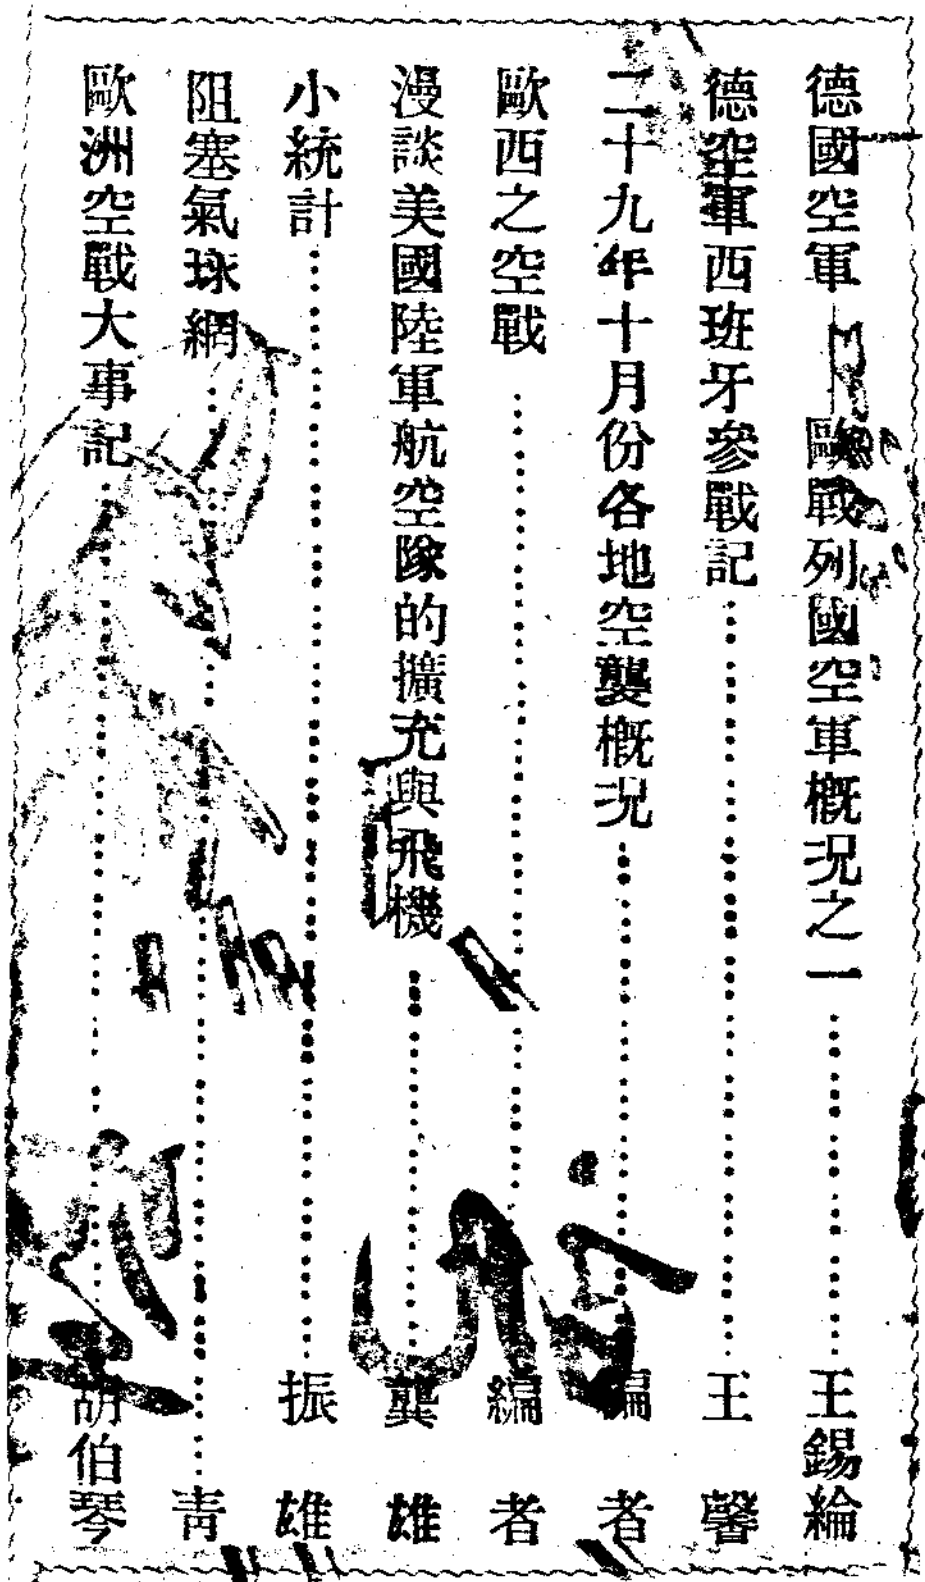 德國空軍—歐戰列國空軍概況之一…………王錫綸
德空軍西班牙參戰記…………王馨
二十九年十月份各地空襲概況…………編者
歐西之空戰…………編者
漫談美國陸軍航空隊的擴充與飛機…………龔雄
小統計…………振雄
阻塞氣球網…………青
歐洲空戰大事記…………胡伯琴